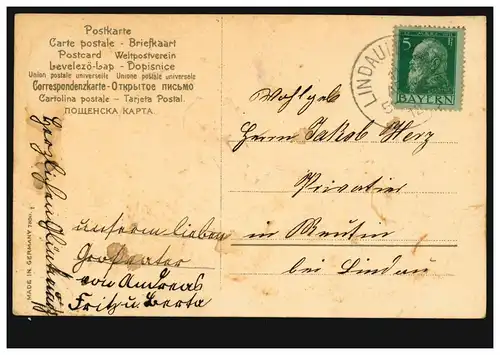 Postkarte
Carte postale - Briefkaart
Postcard Weltpostverein
Levelező-Lap - Dopisnice
Union postale universelle Unione postale universele
Correspondenzkarte - Открытое письмо
Cartolina postale - Tarjeta Postal.
ПОЩЕНСКА КАРТА.
MADE IN GERMANY
unserm lieben
Großvater
von Andreas
Fritz u. Berta
5
BAYERN
LINDAU
Wohlgeb
Herrn Jakob Herz
Privatier
in Reutin
bei Lindau